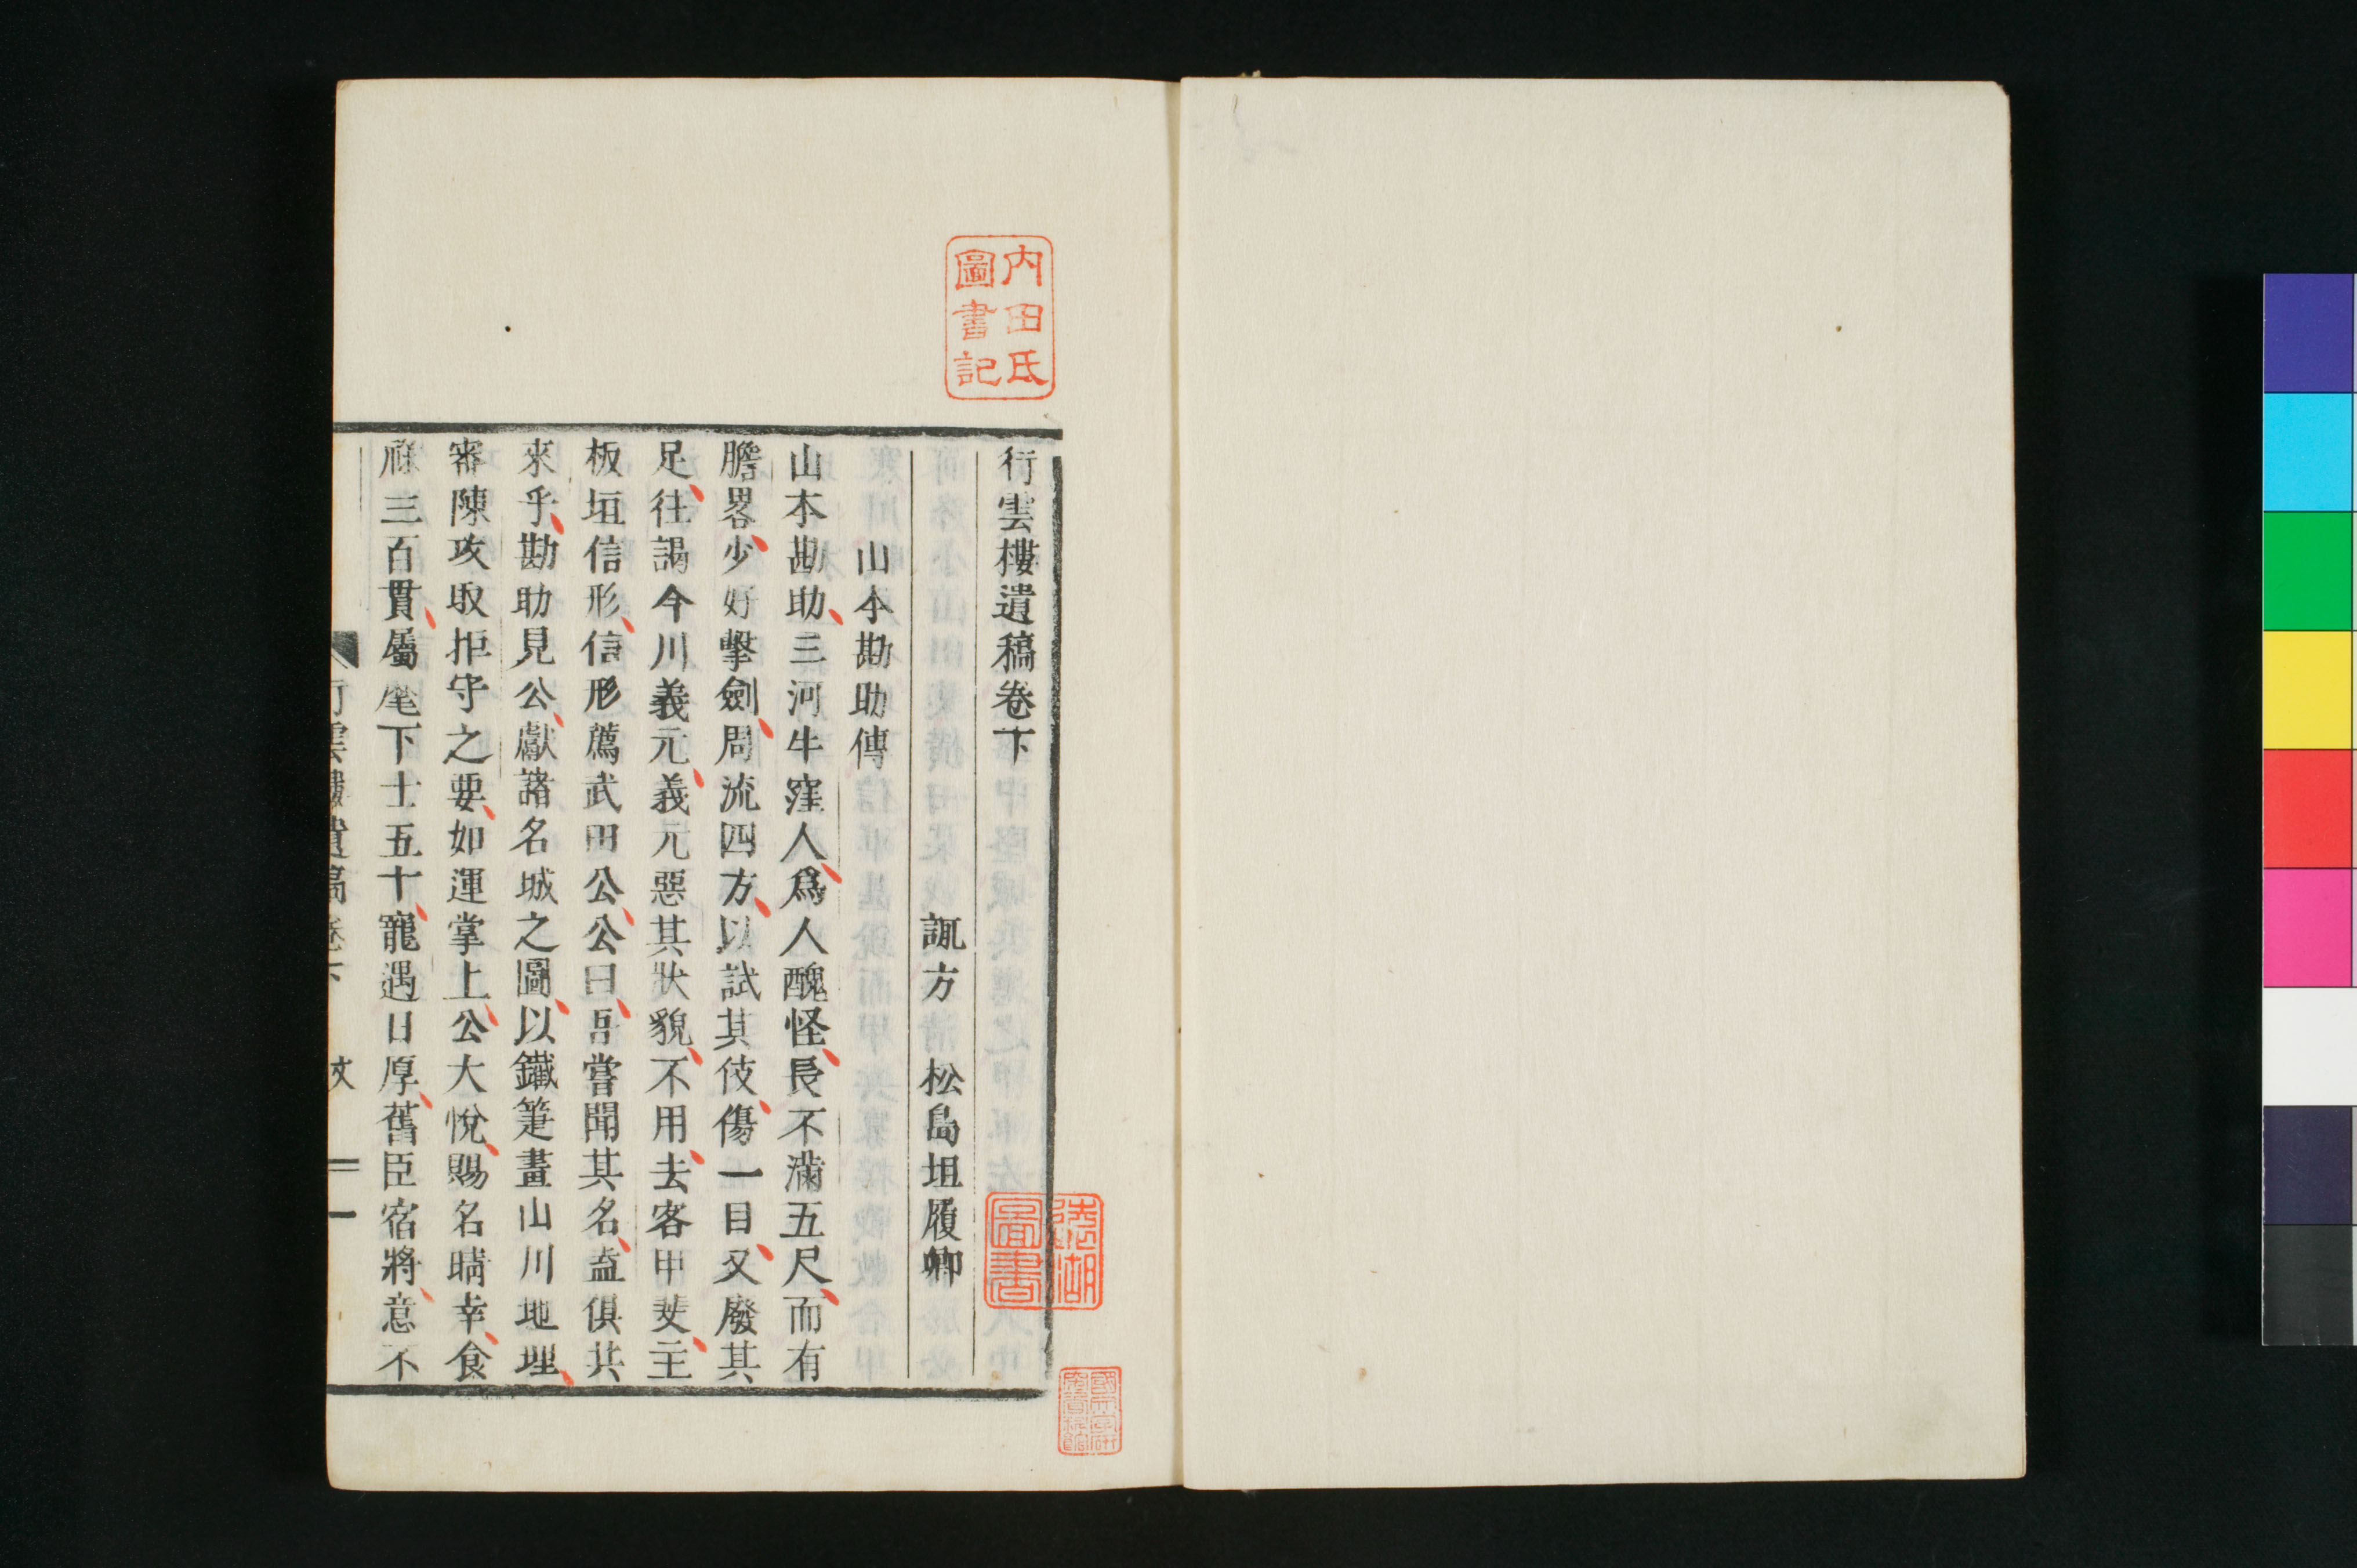 内田氏
圖書記
行雲樓遺稿卷下
諏方　松島坦履卿
山本勘助傳
山本勘助、三河牛窪人、爲人醜怪、長不滿五尺、而有
膽畧、少好擊劍、周流四方、以試其伎、傷一目、又廢其
足、往謁今川義元、義元惡其狀貌、不用、去客甲斐、主
板垣信形、信形薦武田公、公曰、吾嘗聞其名、盍俱共
來乎、勘助見公、獻諸名城之圖、以鐵筆畫山川地理、
審陳攻取拒守之要、如運掌上、公大悅、賜名晴幸、食
祿三百貫、屬麾下士五十、寵遇日厚、舊臣宿將、意不
行雲樓遺稿卷下　文　一